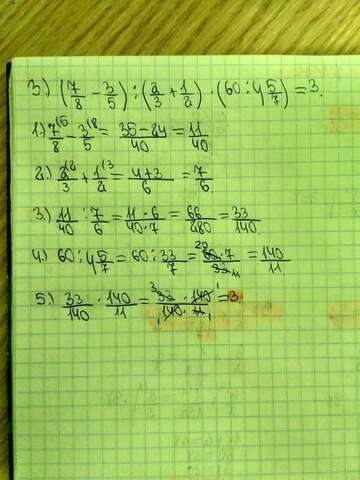 3.) (7/8 - 3/5) : (2/3 + 1/2) · (60 : 4 5/7) = 3.
1.) 7/8 ⁽⁵ - 3/5 ⁽⁸ = (35 - 24)/40 = 11/40.
2.) 2/3 ⁽² + 1/2 ⁽³ = (4 + 3)/6 = 7/6
3.) 11/40 : 7/6 = (11 · 6)/(40 · 7) = 66/280 = 33/140
4.) 60 : 4 5/7 = 60 : 33/7 = (60 · 7)/33 = 140/11
5.) 33/140 · 140/11 = (33 · 140)/(140 · 11) = 3.